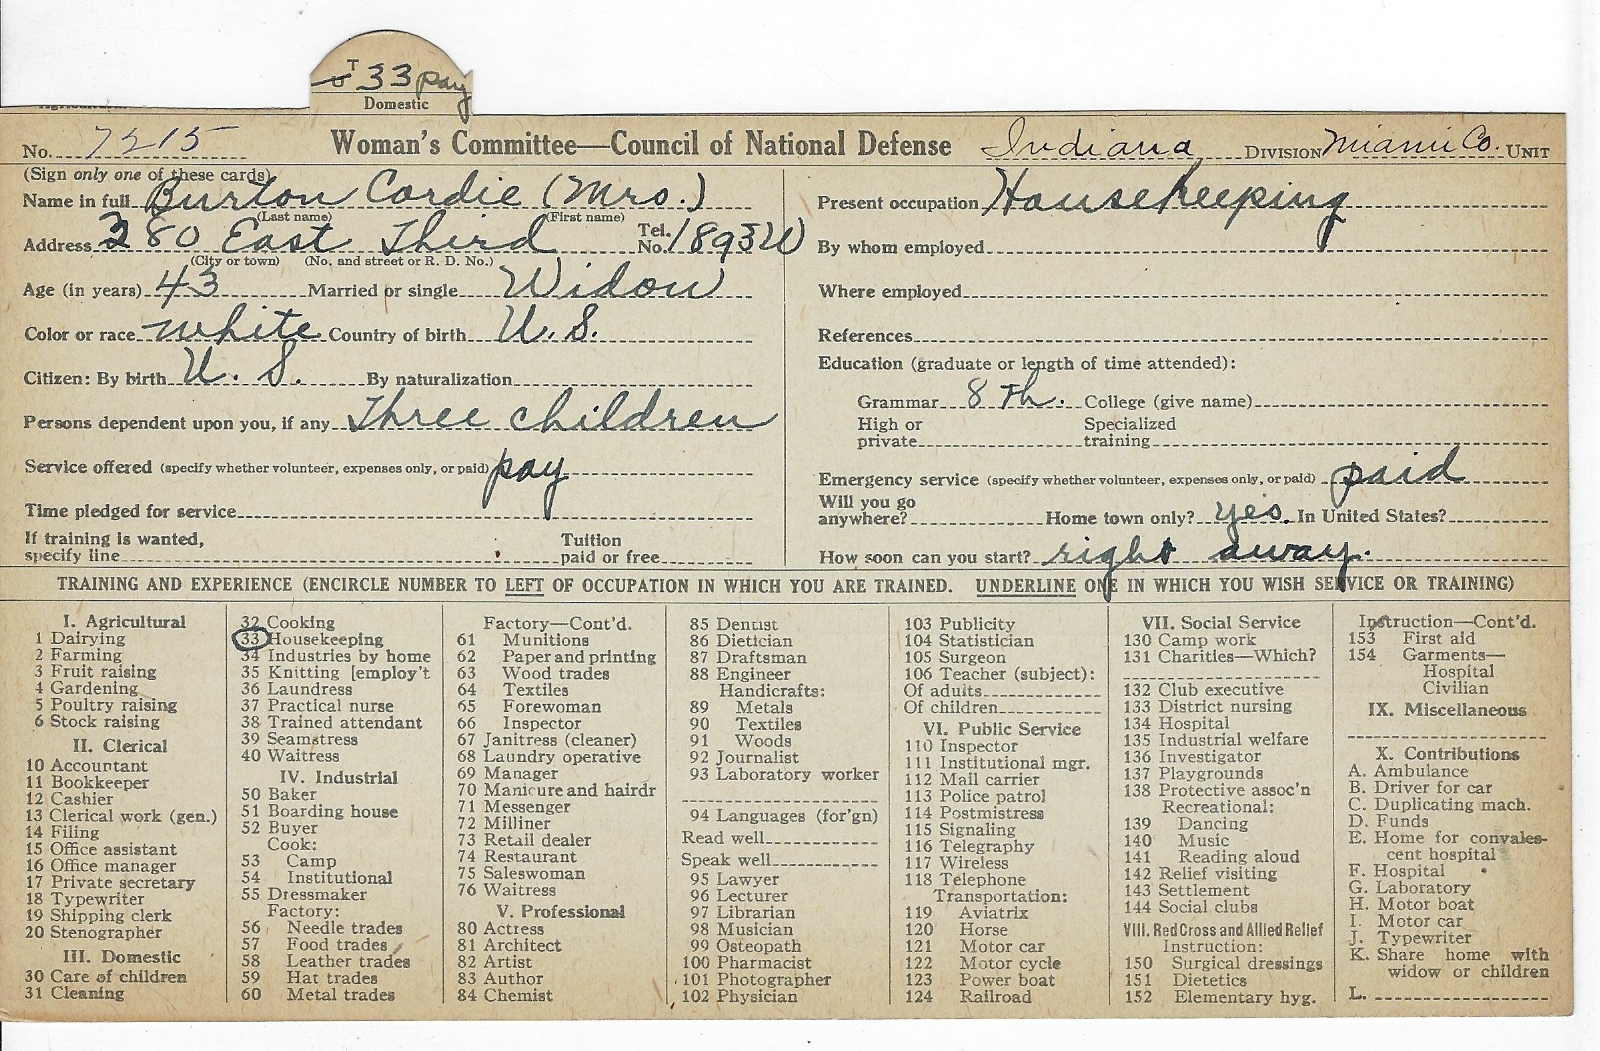 T 33 pay
Domestic
No. 7215 Woman's Committee—Council of National Defense Indiana DIVISION Miami Co. UNIT
(Sign only one of these cards)
Name in full Burton Cordie (Mrs.)
(Last name) (First name)
Address 280 East Third Tel. No. 1893W
(City or town) (No. and street or R. D. No.)
Age (in years) 43 Married or single Widow
Color or race white Country of birth U.S.
Citizen: By birth U. S. By naturalization
Persons dependent upon you, if any Three children
Service offered (specify whether volunteer, expenses only, or paid) pay
Time pledged for service
If training is wanted, specify line Tuition paid or free
Present occupation Housekeeping
By whom employed
Where employed
References
Education (graduate or length of time attended):
Grammar 8 th. College (give name)
High or private Specialized training
Emergency service (specify whether volunteer, expenses only, or paid) paid
Will you go anywhere? Home town only? yes. In United States?
How soon can you start? right away.
TRAINING AND EXPERIENCE (ENCIRCLE NUMBER TO LEFT OF OCCUPATION IN WHICH YOU ARE TRAINED. UNDERLINE ONE IN WHICH YOU WISH SERVICE OR TRAINING)
I. Agricultural
1 Dairying
2 Farming
3 Fruit raising
4 Gardening
5 Poultry raising
6 Stock raising
II. Clerical
10 Accountant
11 Bookkeeper
12 Cashier
13 Clerical work (gen.)
14 Filing
15 Office assistant
16 Office manager
17 Private secretary
18 Typewriter
19 Shipping clerk
20 Stenographer
III. Domestic
30 Care of children
31 Cleaning
32 Cooking
33 Housekeeping
34 Industries by home
35 Knitting [employ't
36 Laundress
37 Practical nurse
38 Trained attendant
39 Seamstress
40 Waitress
IV. Industrial
50 Baker
51 Boarding house
52 Buyer
Cook:
53 Camp
54 Institutional
55 Dressmaker
Factory:
56 Needle trades
57 Food trades
58 Leather trades
59 Hat trades
60 Metal trades
Factory—Cont'd.
61 Munitions
62 Paper and printing
63 Wood trades
64 Textiles
65 Forewoman
66 Inspector
67 Janitress (cleaner)
68 Laundry operative
69 Manager
70 Manicure and hairdr
71 Messenger
72 Milliner
73 Retail dealer
74 Restaurant
75 Saleswoman
76 Waitress
V. Professional
80 Actress
81 Architect
82 Artist
83 Author
84 Chemist
85 Dentist
86 Dietician
87 Draftsman
88 Engineer
Handicrafts:
89 Metals
90 Textiles
91 Woods
92 Journalist
93 Laboratory worker
94 Languages (for'gn)
Read well
Speak well
95 Lawyer
96 Lecturer
97 Librarian
98 Musician
99 Osteopath
100 Pharmacist
101 Photographer
102 Physician
103 Publicity
104 Statistician
105 Surgeon
106 Teacher (subject):
Of adults
Of children
VI. Public Service
110 Inspector
111 Institutional mgr.
112 Mail carrier
113 Police patrol
114 Postmistress
115 Signaling
116 Telegraphy
117 Wireless
118 Telephone
Transportation:
119 Aviatrix
120 Horse
121 Motor car
122 Motor cycle
123 Power boat
124 Railroad
VII. Social Service
130 Camp work
131 Charities—Which?
132 Club executive
133 District nursing
134 Hospital
135 Industrial welfare
136 Investigator
137 Playgrounds
138 Protective assoc'n
Recreational:
139 Dancing
140 Music
141 Reading aloud
142 Relief visiting
143 Settlement
144 Social clubs
VIII. Red Cross and Allied Relief
Instruction:
150 Surgical dressings
151 Dietetics
152 Elementary hyg.
Instruction—Cont'd.
153 First aid
154 Garments—
Hospital
Civilian
IX. Miscellaneous
X. Contributions
A. Ambulance
B. Driver for car
C. Duplicating mach.
D. Funds
E. Home for convales-
cent hospital
F. Hospital
G. Laboratory
H. Motor boat
I. Motor car
J. Typewriter
K. Share home with
widow or children
L.